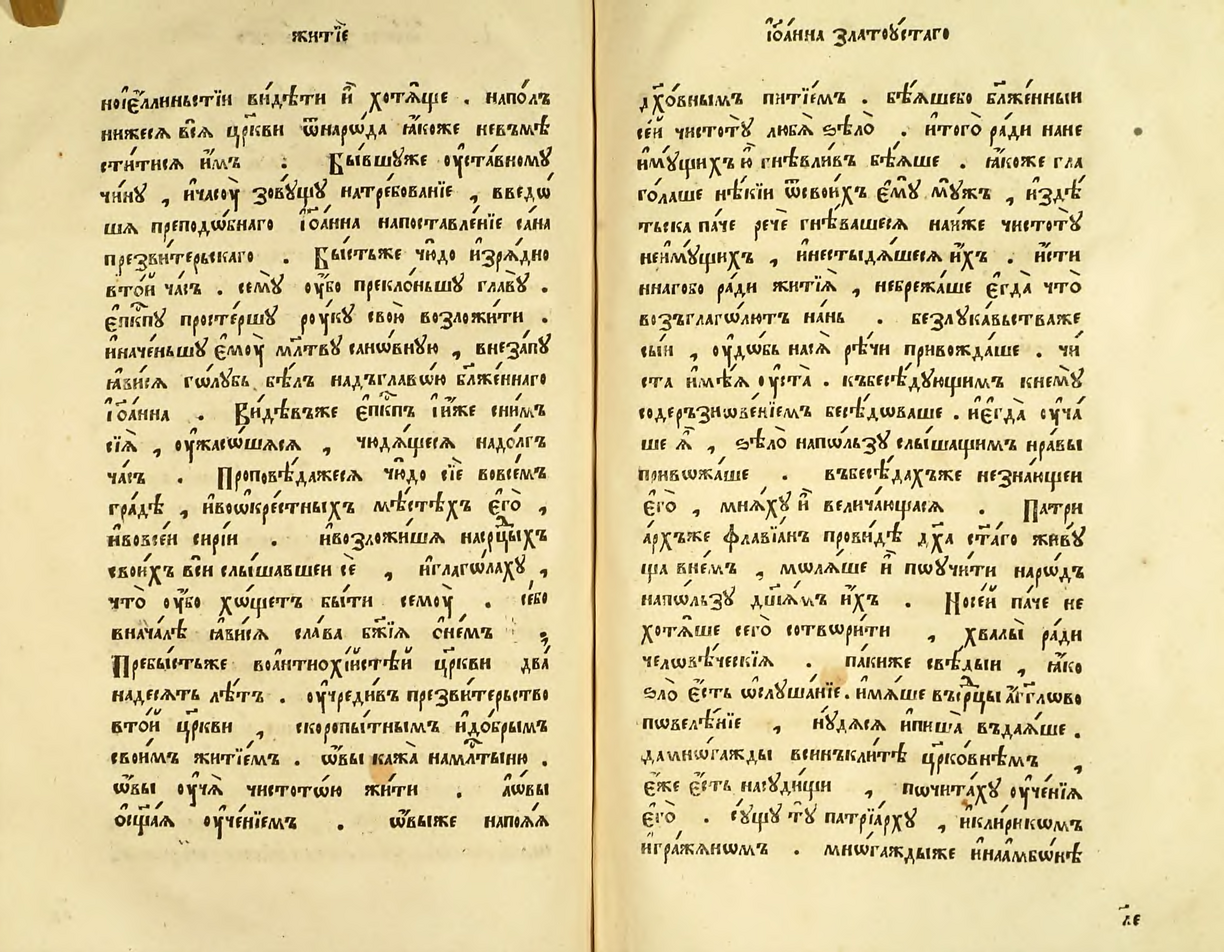 житїе
ноіе҆́ллиньстїи ви́дѣти и҆̀ хотѧ́ще . напо́лъ
нижесѧ всѧ̀ цр҃кви ѿнарѡ́да ꙗ҆́коже невъмѣ
сти́тисѧ и҆̀мъ : Бы́вшуже оу҆ста́вному
чи́нꙋ , и҆часоу̀ зовꙋ́щꙋ натре́бованїе , введо́
шѧ преподѡ́бнаго і҆ѡа́нна напоставле́нїе са́на
презви́терьскаго . Бы́стьже чю́до и҆зрѧ́дно
вто́й ча́съ . семꙋ̀ оу҆́бо прекло́ньшꙋ главꙋ̀ .
е҆пⷭ҇кпꙋ просте́ршꙋ роу́кꙋ свою̀ возложи́ти .
и҆наче́ньшꙋ є҆моу̀ мл҃твꙋ санѡ́внꙋю , внеза́пꙋ
ꙗ҆ви́сѧ го́лꙋбь бѣ́лъ надъглаво́ю бл҃же́ннаго
і҆ѡа́нна . Ви́дѣвъже е҆пⷭ҇кпъ і҆и҆́же сни́мъ
сїѧ̀ , оу҆жасо́шасѧ , чюдѧ́щесѧ надо́лгъ
ча́съ . Проповѣ́дажесѧ чю́до сїѐ вовсе́мъ
гра́дѣ , и҆воѡ҆кре́стныхъ мѣ́стѣхъ е҆гѡ̀ ,
и҆вовсе́и си́рїи . и҆возложи́шѧ насрⷣцыхъ
свои́хъ вси̑ слы́шавшеи сѐ , и҆глаго́лахꙋ ,
что̀ оу҆́бо хо́щетъ бы́ти семоу̀ . се́бо
внача́лѣ ꙗ҆ви́сѧ сла́ва бж҃їѧ сни́мъ ;
Пребы́стьже воа҆нтиохі́йстѣй цр҃кви два̀
на́десѧть лѣ́тъ . оу҆чреди́въ презви́терьство
вто́й цр҃кви , скоропы́тнымъ и҆до́брымъ
свои́мъ житїе́мъ . ѡ҆́вы кажа̀ намл҃тыню .
ѡ҆́вы оу҆чѧ̀ чистото́ю жи́ти . а҆ѡ҆́вы
ѡ҆сщ҃а́ѧ оу҆че́нїемъ . ѡ҆́выже напоѧ́ѧ
і҆ѡа́нна златоꙋ́стаго
дх҃о́внымъ питїе́мъ . бѣѧ́шебо бл҃же́нныи
се́й чистотꙋ̀ любѧ̀ ѕѣлѡ̀ . и҆того̀ ра́ди нане
и҆мꙋ́щихъ ю҆̀ гнѣвли́въ бѣѧ́ше . ꙗ҆́коже гла
го́лаше нѣ́кїи ѿсвои́хъ є҆мꙋ̀ мꙋ́жъ , и҆здѣ́
тьска па́че речѐ гнѣ́вашесѧ на́нже чистотꙋ̀
неимꙋ́щихъ , и҆нестыдѧ́шесѧ и҆́хъ . и҆́сти
ннагобо ра́ди житїѧ̀ , небрежа́ше є҆гда̀ что̀
возъглаго́лютъ на́нь . безлꙋка́вьстваже
сы́и , оу҆до́бь насѧ̀ рѣ́чи привожда́ше . чи́
ста и҆мѣ́ѧ оу҆ста̀ . къбесѣ́дꙋющимъ кнемꙋ̀
содеръзнове́нїемъ бесѣ́доваше . и҆е҆гда̀ оу҆ча́
ше ꙗ҆̀ , ѕѣлѡ̀ напо́льзꙋ слы́шащимъ нра́вы
привожа́ше . въбесѣ́дахъже незна́ющеи
є҆гѡ̀ , мнѧ́хꙋ и҆̀ велича́ющасѧ . Патри
а́рхъже флавїа́нъ прови́дѣ дх҃а ст҃а́го живꙋ́
ща вне́мъ , молѧ́ше и҆̀ поучи́ти наро́дъ
напо́льзꙋ дш҃а́мъ и҆́хъ . Носе́й па́че не
хотѧ́ше сего̀ сотвори́ти , хвалы̀ ра́ди
человѣ́ческїѧ . па́киже свѣ́дыи , ꙗ҆́ко
ѕло̀ є҆́сть ѡ҆слꙋша́нїе . и҆мѧ́ше въсрⷣцы а҆́гг҃лово
повелѣ́нїе , нꙋ́дѧсѧ и҆писа̀ въдаѧ́ше .
дамно́гажды всинъкли́тѣ цр҃ко́внѣмъ ,
є҆́же є҆́сть насꙋ́дищи , почита́хꙋ оу҆че́нїѧ
є҆гѡ̀ . сꙋ́щꙋ тꙋ̀ патрїа́рхꙋ , и҆кли́рикомъ
и҆гра́жаномъ . мно́гаждыже и҆наамво́нѣ
л҃е